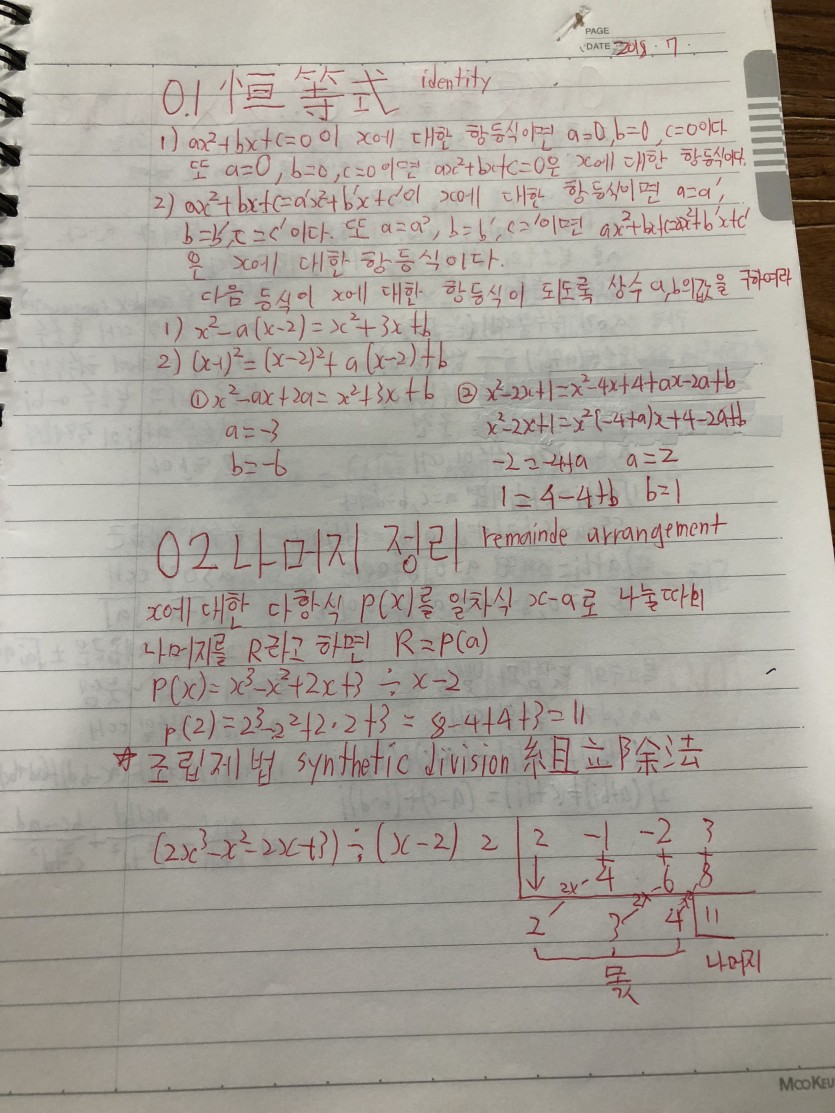 PAGE
DATE 2018. 7.
0.1 恒等式 identity
1) ax²+bx+c=0이 x에 대한 항등식이면 a=0, b=0, c=0이다
또 a=0, b=0, c=0이면 ax²+bx+c=0은 x에 대한 항등식이다.
2) ax²+bx+c=a'x²+b'x+c'이 x에 대한 항등식이면 a=a',
b=b', c=c'이다. 또 a=a', b=b', c='이면 ax²+bx+c=ax²+b'x+c'
은 x에 대한 항등식이다.
다음 등식이 x에 대한 항등식이 되도록 상수 a,b의값을 구하여라
1) x²-a(x-2)=x²+3x+b
2) (x-1)²=(x-2)²+a(x-2)+b
① x²-ax+2a=x²+3x+b ② x²-2x+1=x²-4x+4+ax-2a+b
a=-3 x²-2x+1=x²(-4+a)x+4-2a+b
b=-6 -2=-4+a a=2
1=4-4+b b=1
02 나머지 정리 remainde arrangement
x에 대한 다항식 P(x)를 일차식 x-a로 나눌때의
나머지를 R라고 하면 R=P(a)
P(x)=x³-x²+2x+3 ÷ x-2
P(2)=2³-2²+2·2+3=8-4+4+3=11
☆ 조립제법 synthetic division 組立除法
(2x³-x²-2x+3)÷(x-2) 2 2 -1 -2 3
↓ 2x 4 + 2x 6 + x2 8 +
2 3 4 11
몫 나머지
MOOKEU